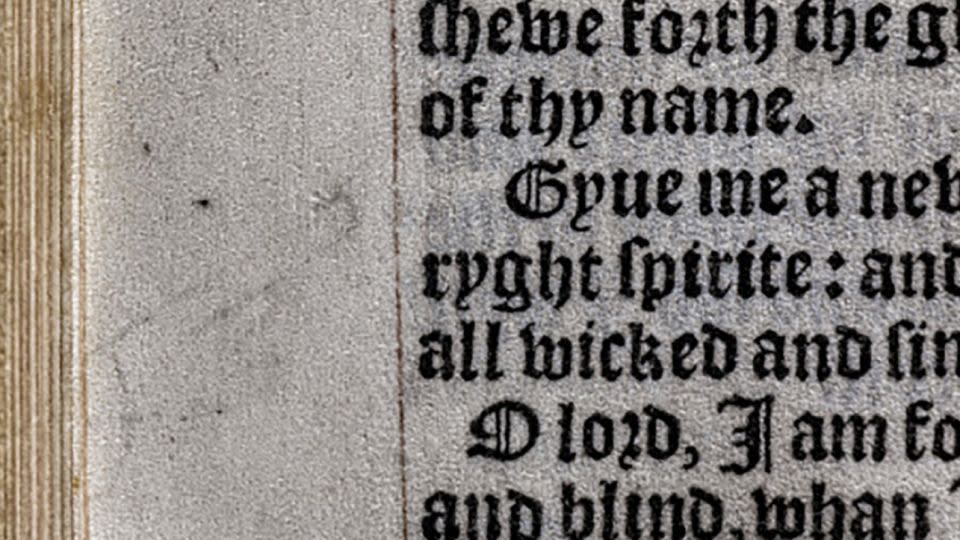 ſhewe forth the
of thy name.
Gyue me a
ryght ſpirite: and
all wicked and
O lord, I am
and blind, whan